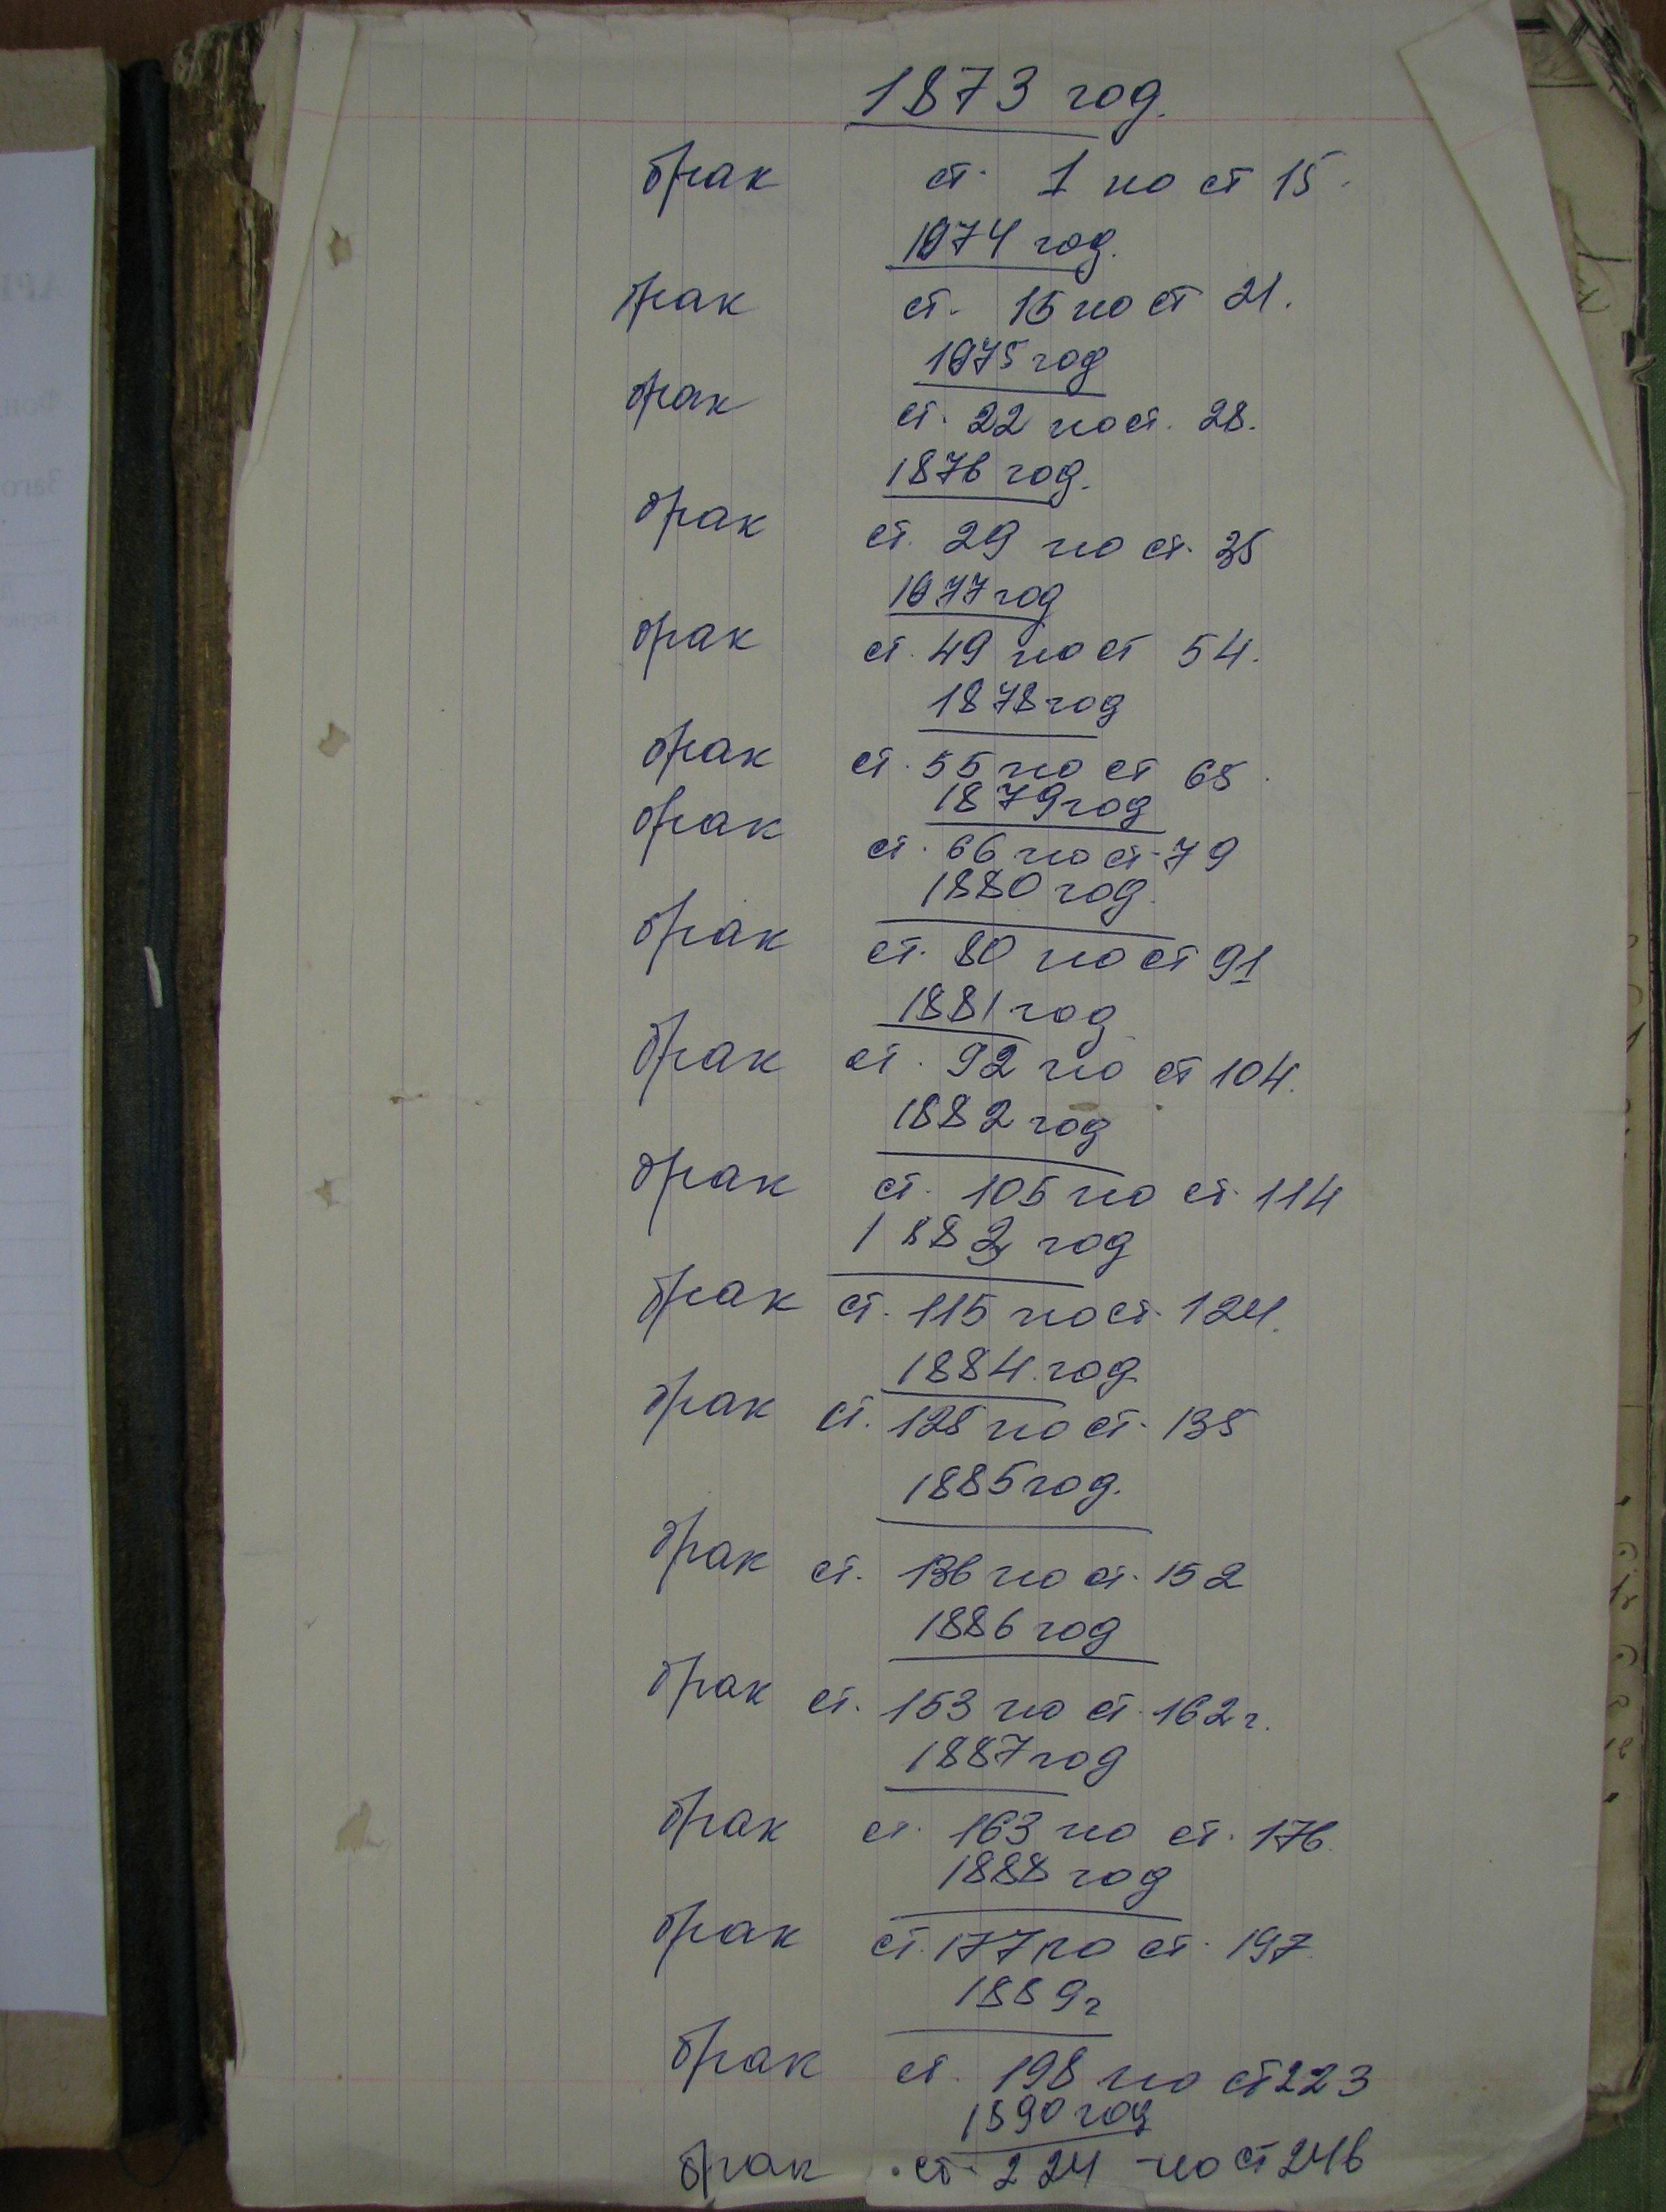 1873 год.
брак ст. 1 по ст 15.
1874 год.
брак ст. 15 по ст 21.
1875 год
брак ст. 22 по ст. 28.
1876 год.
брак ст. 29 по ст. 35
1877 год
брак ст. 49 по ст 54.
1878 год
брак ст. 55 по ст 65.
1879 год
брак ст. 66 по ст. 79
1880 год.
брак ст. 80 по ст 91
1881 год
брак ст. 92 по ст 104.
1882 год
брак ст. 105 по ст. 114
1883 год
брак ст. 115 по ст. 124.
1884 год
брак ст. 125 по ст. 135
1885 год.
брак ст. 136 по ст. 152
1886 год
брак ст. 153 по ст. 162 г.
1887 год
брак ст. 163 по ст. 176.
1888 год
брак ст. 177 по ст. 197.
1889 г
брак ст. 198 по ст 223
1890 год
брак ст. 224 по ст 246